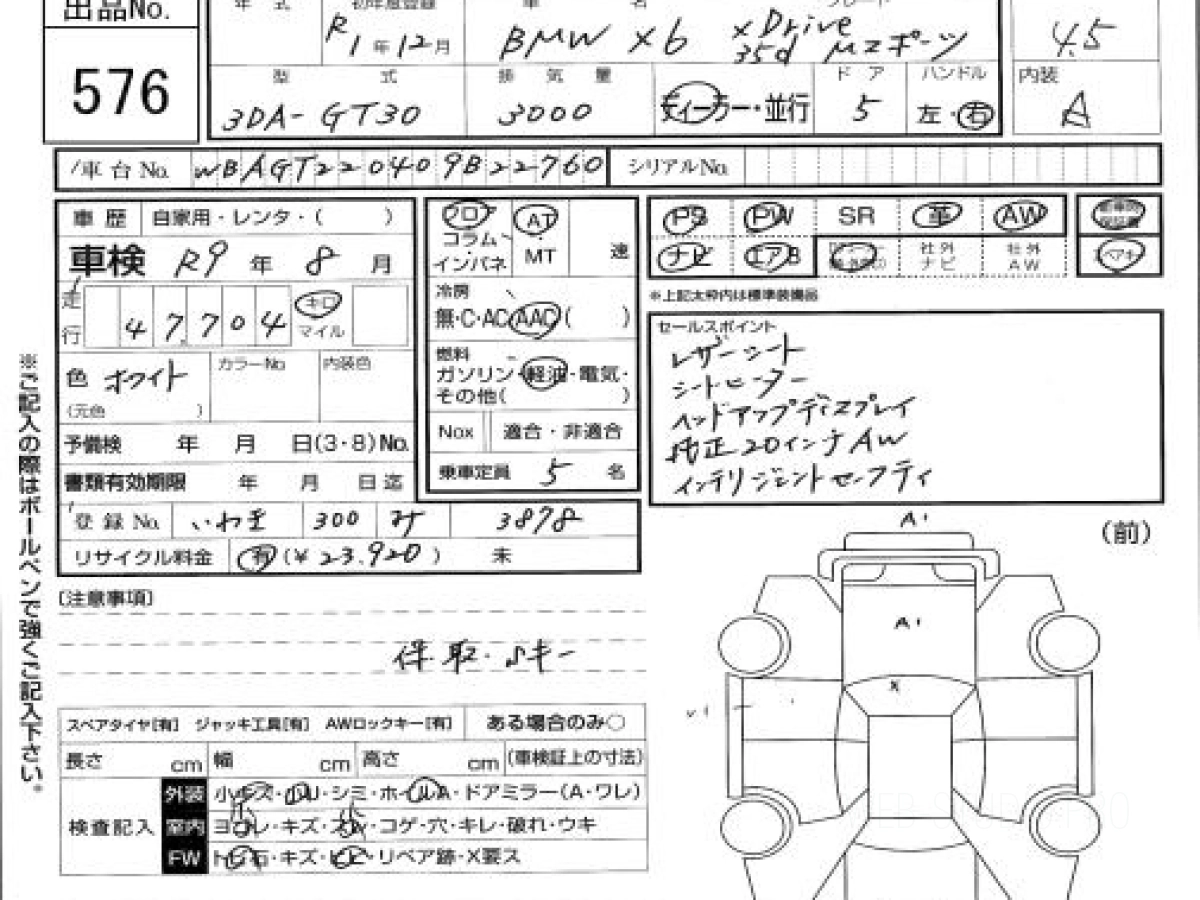 出品No.
576
年式 初年度登録 車名 グレード
R1年12月 BMW X6 xDrive 35d Mスポーツ
4.5
型式 排気量 ドア ハンドル 内装
3DA-GT30 3000 ディーラー・並行 5 左・右 A
車台No. WBAGT220409B22760 シリアルNo.
車歴 自家用・レンタ・( )
車検 R9年 8月
走行 47,704 キロ マイル
色 ホワイト カラーNo 内装色
(元色 )
予備検 年 月 日(3・8)No.
書類有効期限 年 月 日迄
登録No. いわき 300 み 3878
リサイクル料金 有 (¥23,920) 未
フロア コラム インパネ AT MT 速
冷房
無・C・AC・AAC( )
燃料
ガソリン・軽油・電気・
その他( )
Nox 適合・非適合
乗車定員 5 名
PS PW SR 革 AW
ナビ エアB 社外ナビ 社外AW
※上記太枠内は標準装備品
セールスポイント
レザーシート
シートヒーター
ヘッドアップディスプレイ
純正20インチAW
インテリジェントセーフティ
※ご記入の際はボールペンで強くご記入下さい。
[注意事項]
保取・Sキー
スペアタイヤ[有] ジャッキ工具[有] AWロックキー[有] ある場合のみ○
長さ cm 幅 cm 高さ cm (車検証上の寸法)
検査記入
外装 小キズ・小U・シミ・ホイルA・ドアミラー(A・ワレ)
室内 ヨゴレ・キズ・スレ・コゲ・穴・キレ・破れ・ウキ
FW トビ石・キズ・ヒビ・リペア跡・X要ス
(前)
A1
A1
X